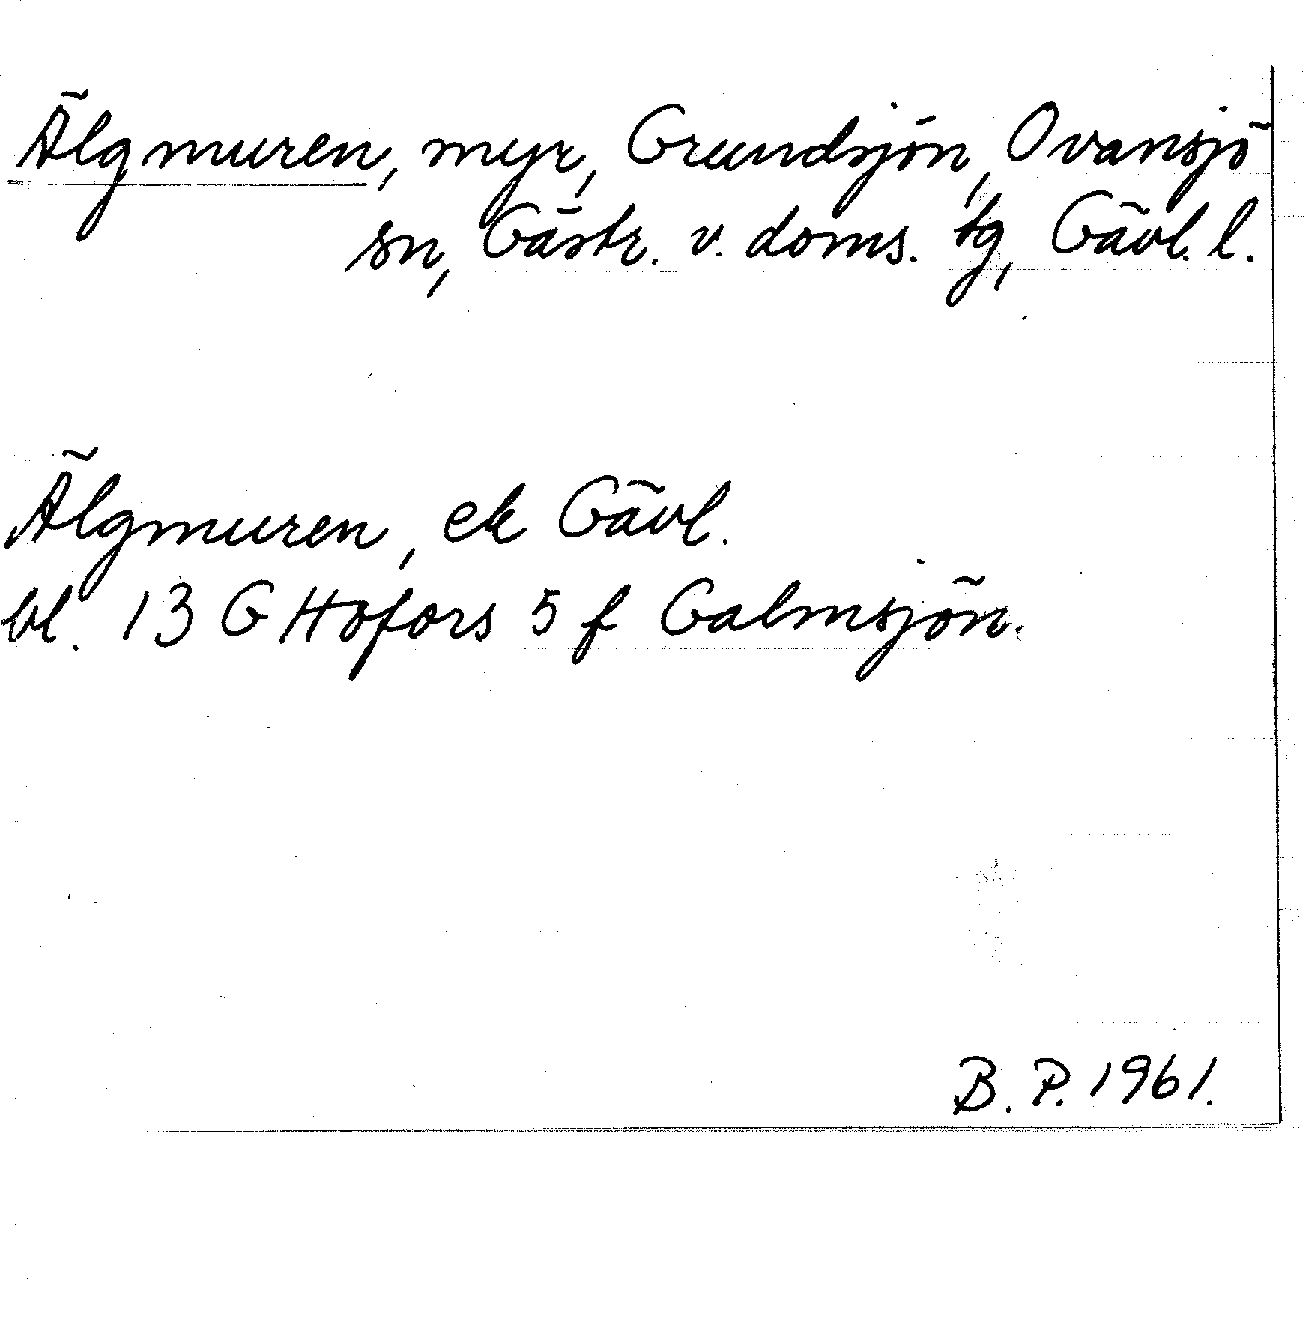 Älgmuren, myr, Grundsjön, Ovansjö
sn, Gästr. v. doms. tg, Gävl. l.
Älgmuren, ek Gävl.
bl. 13 G Hofors 5 f Galmsjön.
B. P. 1961.